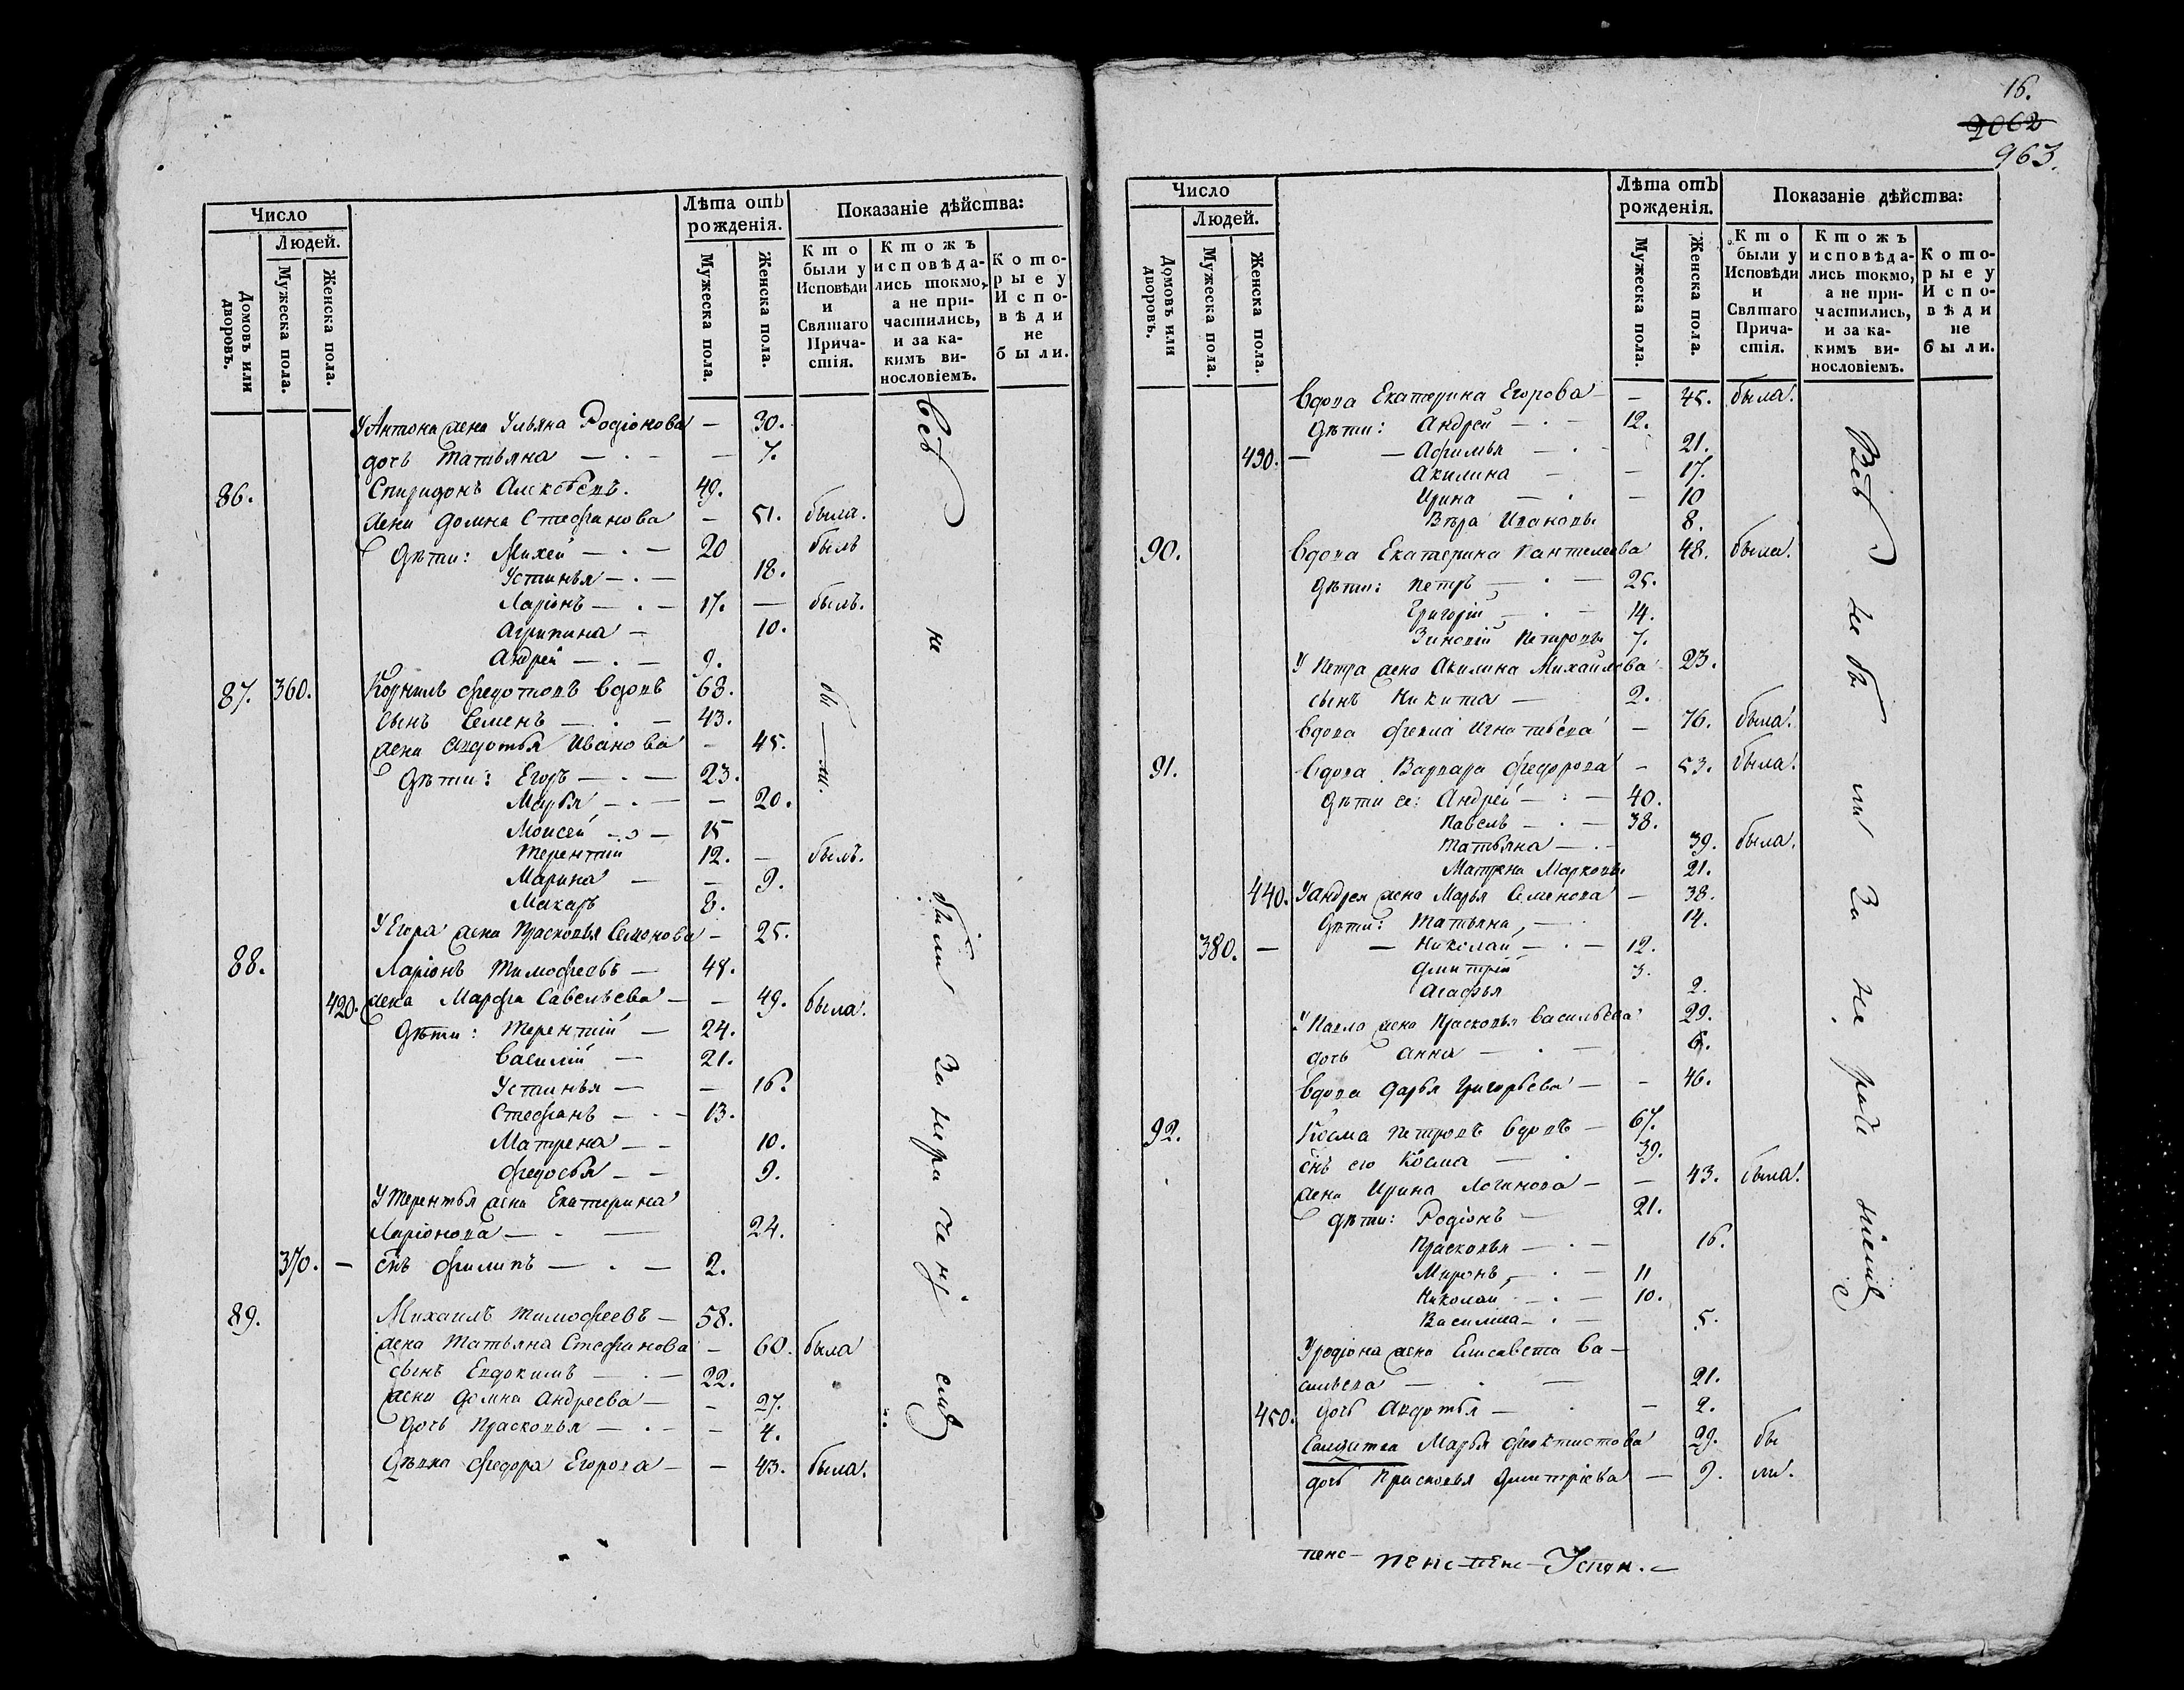 Число
Людей.
Домовъ или дворовъ.
Мужеска пола.
Женска пола.
Лѣта отъ рожденія.
Мужеска пола.
Женска пола.
Показаніе дѣйства:
Кто были у Исповѣди и Святаго Причастія.
Ктожъ исповѣдались токмо, а не причастились, и за какимъ винословіемъ.
Которые у Исповѣди не были.
У Антона жена Ульяна Родіонова — 30.
дочь Татьяна — · — — 7.
86. Спиридонъ Алексѣевъ. 49.
жена Домна Стефанова — 51. была.
Дѣти: Михей — · — 20 былъ
Устинья — · — 18.
Ларіонъ — · — 17. — былъ.
Агрипина — 10.
Андрей — · — 9.
87. 360. Корнилъ Федотовъ вдовъ 63.
сынъ Семенъ — · — 43.
жена Авдотья Иванова — 45.
Дѣти: Егоръ — · — 23.
Марья — · — — 20.
Моисей — 15
Терентій 12. — былъ.
Марина — — 9.
Макаръ 8.
У Егора жена Прасковья Семенова — 25.
88. Ларіонъ Тимофеевъ — 48.
420. жена Марфа Савельева — — 49. была.
Дѣти: Терентій — 24.
Василій — 21.
Устинья — — 16.
Стефанъ — · — 13.
Матрена — — 10.
Федосья — — 9.
У Терентья жена Екатерина
Ларіонова — · — 24.
370. — снъ Филипъ — · — 2.
89. Михаилъ Тимофеевъ — 58.
жена Татьяна Стефанова — 60. была
сынъ Евдокимъ — · — 22.
жена Домна Андреева — — 27.
дочь Прасковья — · — — 4.
Дѣвка Федора Егорова — — 43. была.
Всѣ не были за нераченіемъ
16.
2062
963.
Число
Людей.
Домовъ или дворовъ.
Мужеска пола.
Женска пола.
Лѣта отъ рожденія.
Мужеска пола.
Женска пола.
Показаніе дѣйства:
Кто были у Исповѣди и Святаго Причастія.
Ктожъ исповѣдались токмо, а не причастились, и за какимъ винословіемъ.
Которые у Исповѣди не были.
Вдова Екатерина Егорова — — 45. была.
Дѣти: Андрей — · — 12.
430. — — Афимья — · — 21.
Акилина — — 17.
Ирина — · — 10
Вѣра Ивановы 8.
90. Вдова Екатерина Пантелеева 48. была.
Дѣти: Петръ — · — 25.
Григорій — · — 14.
Зиновій Петровы 7.
У Петра жена Акилина Михайлова 23.
сынъ Никита — 2.
Вдова Фекла Игнатьева — 76. была.
91. Вдова Варвара Федорова — 53. была.
Дѣти ея: Андрей — · — 40.
Павелъ — · — 38.
Татьяна — · — 39. была.
Матрена Марковы 21.
440. У Андрея жена Марья Семенова — 38.
Дѣти: Татьяна, — · 14.
380. — — Николай — · — 12.
Дмитрій 3.
Агафья 2.
У Павла жена Прасковья Васильева 29.
дочь Анна — · — 6.
Вдова Дарья Григорьева — — 46.
92. Косма Петровъ вдовъ — 67.
снъ его Косма — · 39.
жена Ирина Логинова — — 43. была.
Дѣти: Родіонъ — 21.
Прасковья — · — 16.
Миронъ, — · — 11
Николай — · — 10.
Василиса — · — 5.
У Родіона жена Елисавета Ва-
сильева — · — 21.
450. дочь Авдотья — · — 2.
Салдатка Марья Феоктистова 29. бы
дочь Прасковья Дмитріева — 9. ли.
Всѣ не были за нераченіемъ